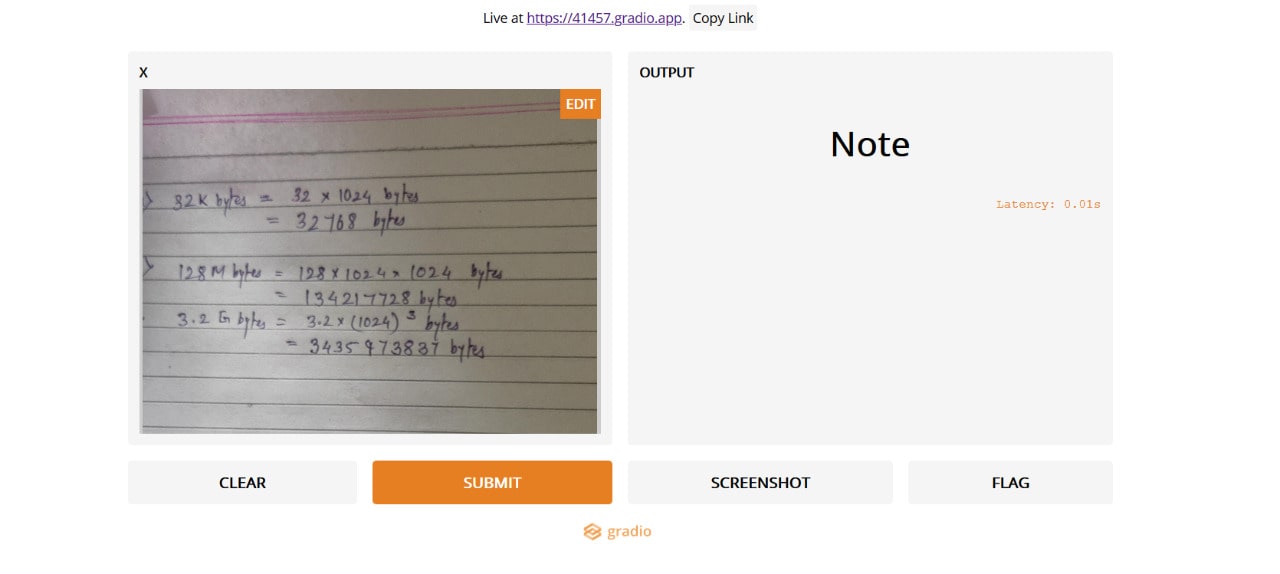 Live at https://41457.gradio.app. Copy Link
X
EDIT
32K bytes = 32 x 1024 bytes
= 32768 bytes
128 M bytes = 128 x 1024 x 1024 bytes
= 134217728 bytes
3.2 G bytes = 3.2 x (1024)³ bytes
= 3435973837 bytes
OUTPUT
Note
Latency: 0.01s
CLEAR
SUBMIT
SCREENSHOT
FLAG
gradio